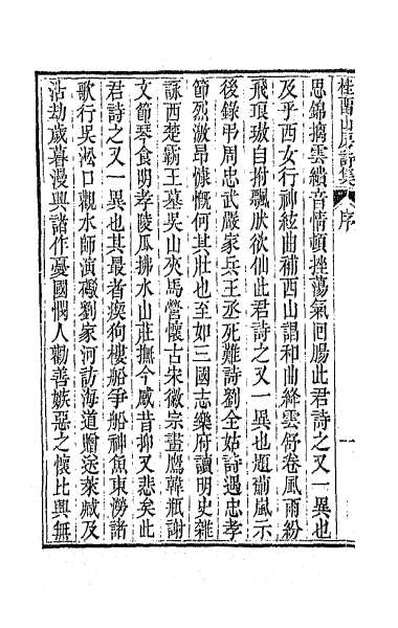 桂酉山房詩集 序 一
思錦摛雲繢音情頓挫蕩氣回腸此君詩之又一異也
及乎西女行神絃曲補西山謌和曲絳雲舒卷風雨紛
飛琅璈自拊飄肰欲仙此君詩之又一異也題前風示
後錄弔周忠武嚴家兵王丞死難詩劉全姑詩遇忠孝
節烈激昂慷慨何其壯也至如三國志樂府讀明史雜
詠西楚霸王墓吳山夾馬營懷古宋徽宗畫鷹韓瓶謝
文節琴食明孝陵瓜拂水山莊撫今感昔抑又悲矣此
君詩之又一異也其最者瘈狗樓船爭船神魚東澇諸
歌行吳淞口觀水師演礮劉家河訪海道贈送萊臧及
沾劫歲暮漫興諸作憂國憫人勸善嫉惡之懷比興無